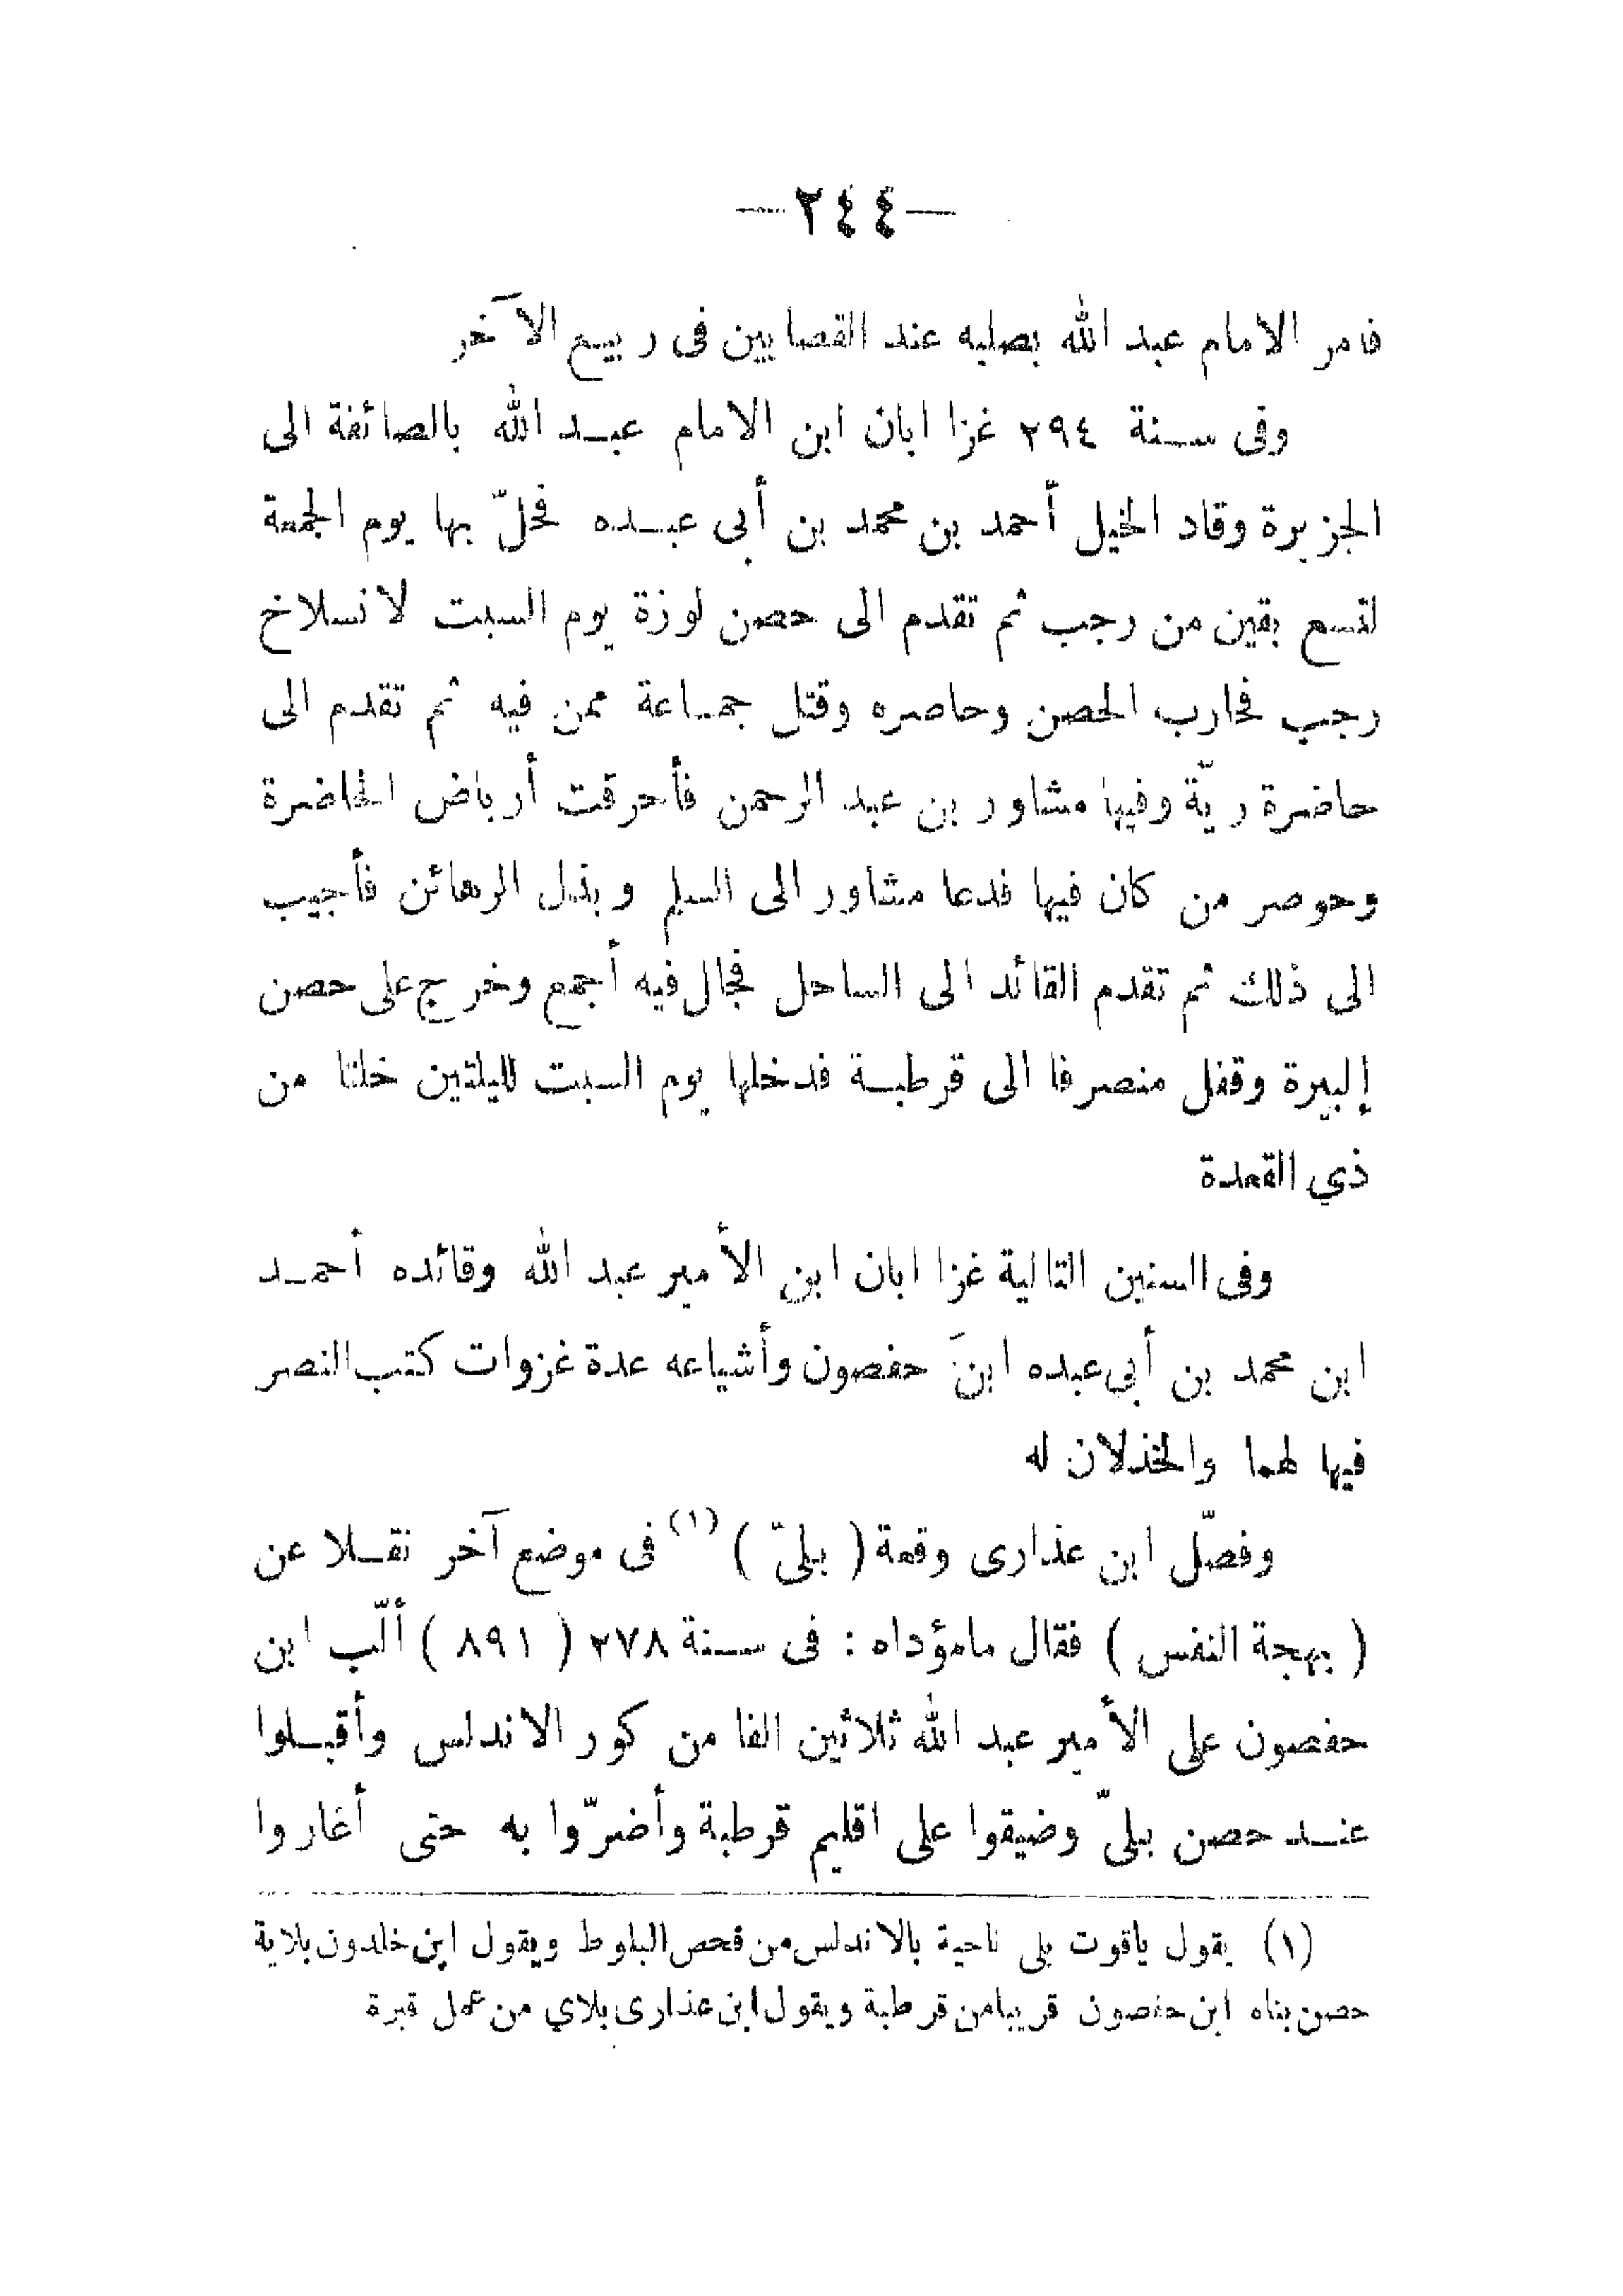 —٢٤٤—
فامر الامام عبد الله بصلبه عند القصابين فى ربيع الآخر
وفى سنة ٢٩٤ غزا ابان ابن الامام عبد الله بالصائفة الى
الجزيرة وقاد الخيل أحمد بن محمد بن أبى عبده فحلّ بها يوم الجمعة
لتسع بقين من رجب ثم تقدم الى حصن لوزة يوم السبت لانسلاخ
رجب فحارب الحصن وحاصره وقتل جماعة ممن فيه ثم تقدم الى
حاضرة ريّة وفيها مشاور بن عبد الرحمن فأحرقت أرباض الحاضرة
وحوصر من كان فيها فدعا مشاور الى السلم وبذل الرهائن فأجيب
الى ذلك ثم تقدم القائد الى الساحل فجال فيه أجمع وخرج على حصن
إلبيرة وقفل منصرفا الى قرطبة فدخلها يوم السبت لليلتين خلتا من
ذي القعدة
وفى السنين التالية غزا ابان ابن الأمير عبد الله وقائده أحمد
ابن محمد بن أبى عبده ابنَ حفصون وأشياعه عدة غزوات كتب النصر
فيها لهما والخذلان له
وفصّل ابن عذارى وقعة ( بيلىّ ) (١) فى موضع آخر نقلا عن
( بهجة النفس ) فقال مامؤداه : فى سنة ٢٧٨ ( ٨٩١ ) ألّب ابن
حفصون على الأمير عبد الله ثلاثين الفا من كور الاندلس وأقبلوا
عند حصن بيلىّ وضيقوا على اقليم قرطبة وأضرّوا به حتى أغاروا
(١) يقول ياقوت بلى ناحية بالاندلس من فحص البلوط ويقول ابن خلدون بلاية
حصن بناه ابن حفصون قريبا من قرطبة ويقول ابن عذارى بلاي من عمل قبرة